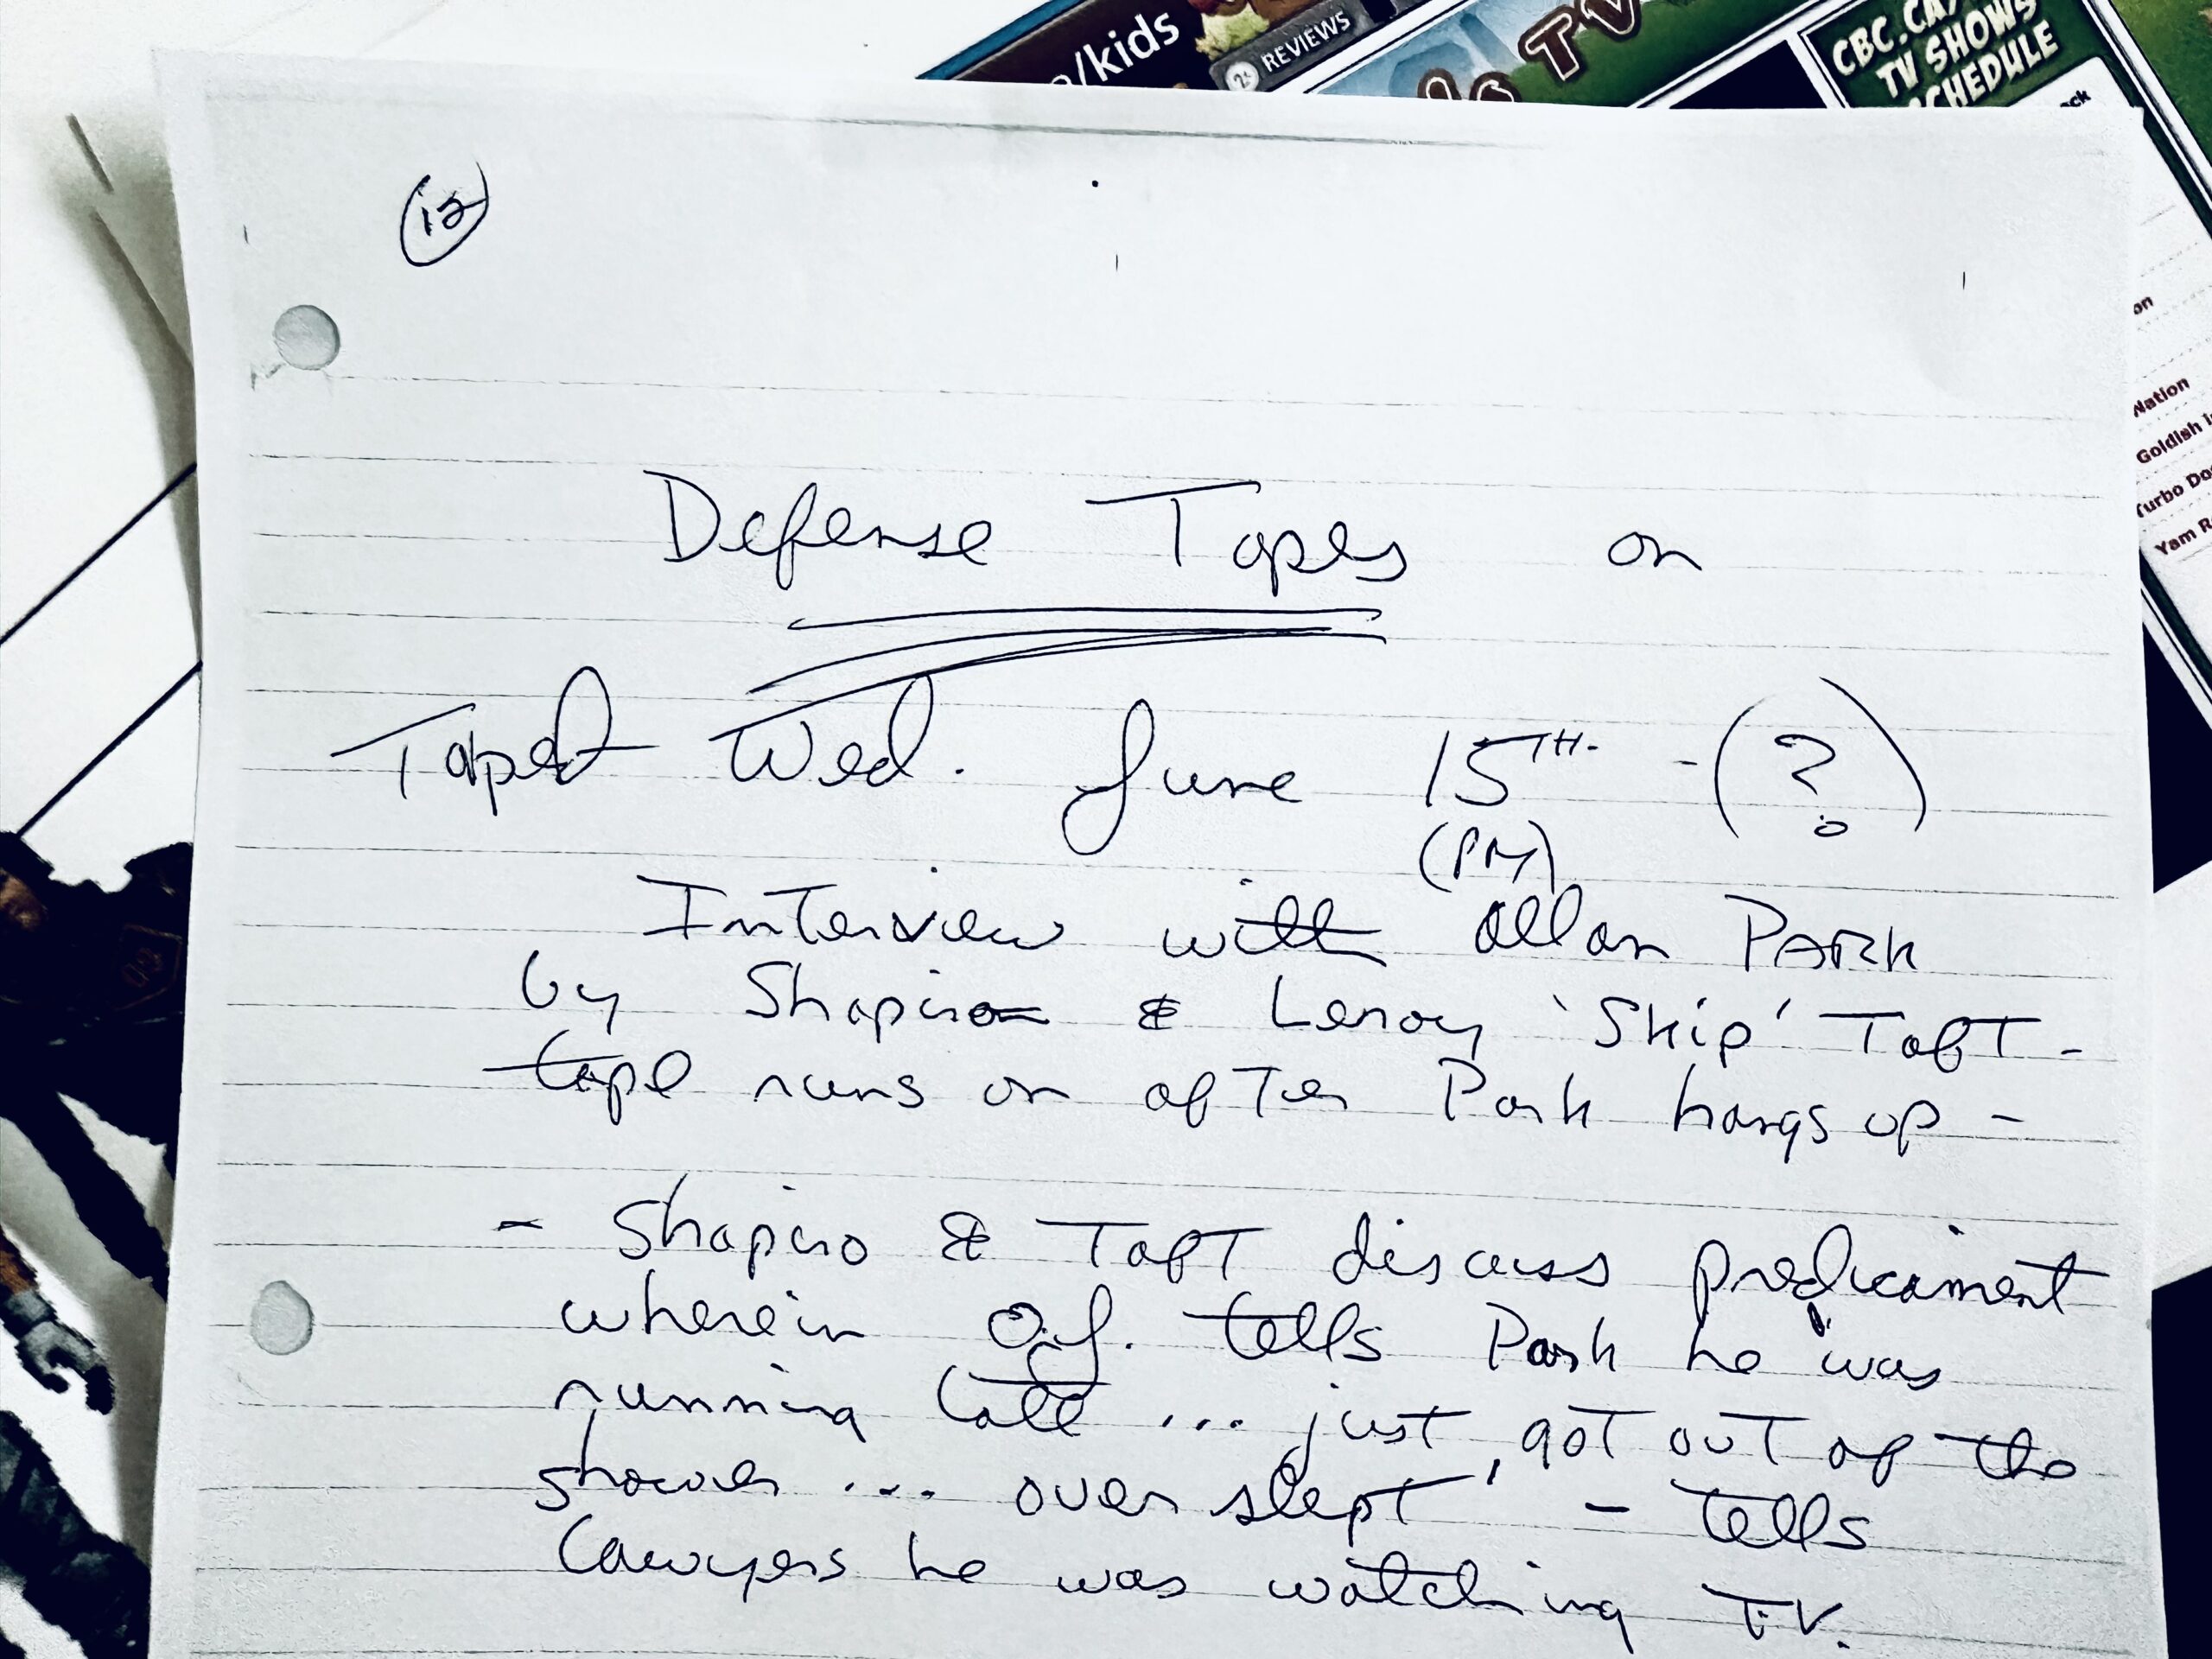 /kids
REVIEWS
TV
CBC.CA/
TV SHOWS
SCHEDULE
12
Defense Tapes on
Taped Wed. June 15TH. - (?)
(PM)
Interview with Allan PARK
by Shapiro & Leroy 'Skip' Taft -
tape runs on after Park hangs up -
- Shapiro & Taft discuss predicament
wherein O.J. tells Park he was
running late ... 'just got out of the
shower ... over slept' - tells
Lawyers he was watching T.V.
on
Nation
Goldish
Turbo
Yam